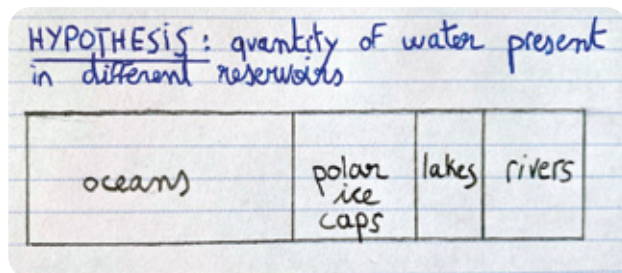 HYPOTHESIS: quantity of water present
in different reservoirs
oceans
polar
ice
caps
lakes
rivers